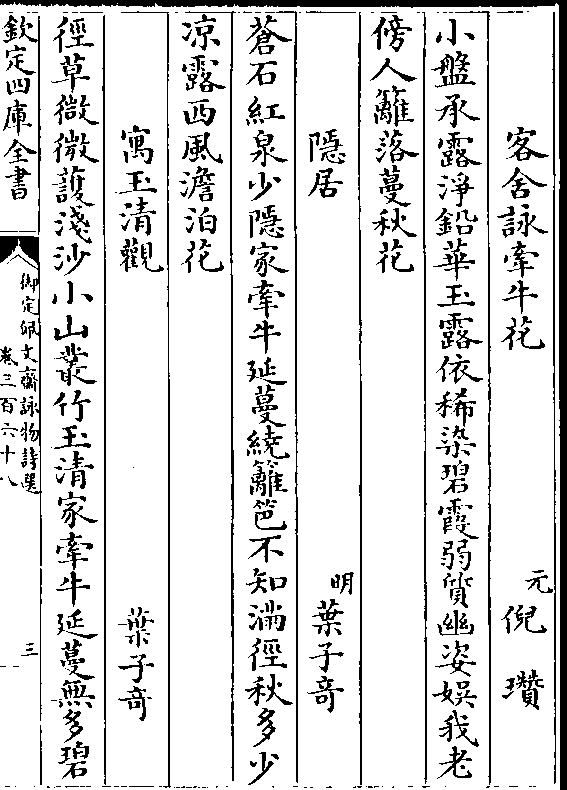 客舍詠牽牛花 元倪瓚
小盤承露淨鉛華玉露依稀染碧霞弱質幽姿娛我老
傍人籬落蔓秋花
隠居 明葉子竒
蒼石紅泉少隠家牽牛延蔓繞籬笆不知滿徑秋多少
凉露西風澹泊花
寓玉清觀 葉子竒
徑草微微護淺沙小山叢竹玉清家牽牛延蔓無多碧
欽定四庫全書
御定佩文齋詠物詩選
卷三百六十八
三